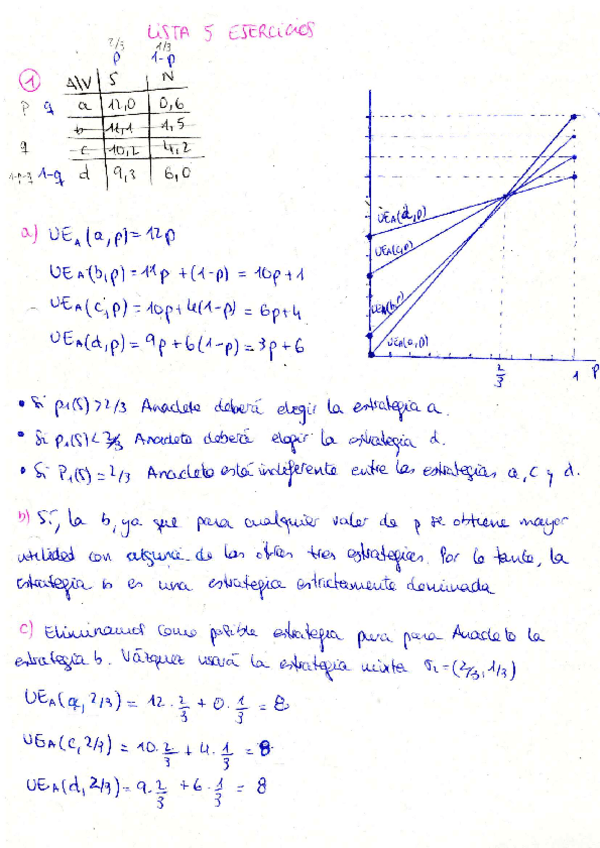 LISTA 5 EJERCICIOS
2/3 1/3
p 1-p
① A\V S N
p q a 12,0 0,6
b 11,1 1,5
q c 10,2 4,2
1-p-q 1-q d 9,3 6,0
a) UEA(a,p)=12p
UEA(b,p)=11p+(1-p)=10p+1
UEA(c,p)=10p+4(1-p)=6p+4
UEA(d,p)=9p+6(1-p)=3p+6
UEA(d,p)
UEA(c,p)
UEA(b,p)
UEA(a,p)
2/3 1 p
• Si p1(S)>2/3 Anacleto deberá elegir la estrategia a.
• Si p1(S)<2/3 Anacleto deberá elegir la estrategia d.
• Si P1(S)=2/3 Anacleto está indiferente entre las estrategias a, c y d.
b) Sí, la b, ya que para cualquier valor de p se obtiene mayor
utilidad con alguna de las otras tres estrategias. Por lo tanto, la
estrategia b es una estrategia estrictamente dominada
c) Eliminamos como posible estrategia pura para Anacleto la
estrategia b. Vázquez usará la estrategia mixta σ2=(2/3,1/3)
UEA(a,2/3) = 12·2/3 + 0·1/3 = 8
UEA(c,2/3) = 10·2/3 + 4·1/3 = 8
UEA(d,2/3) = 9·2/3 + 6·1/3 = 8